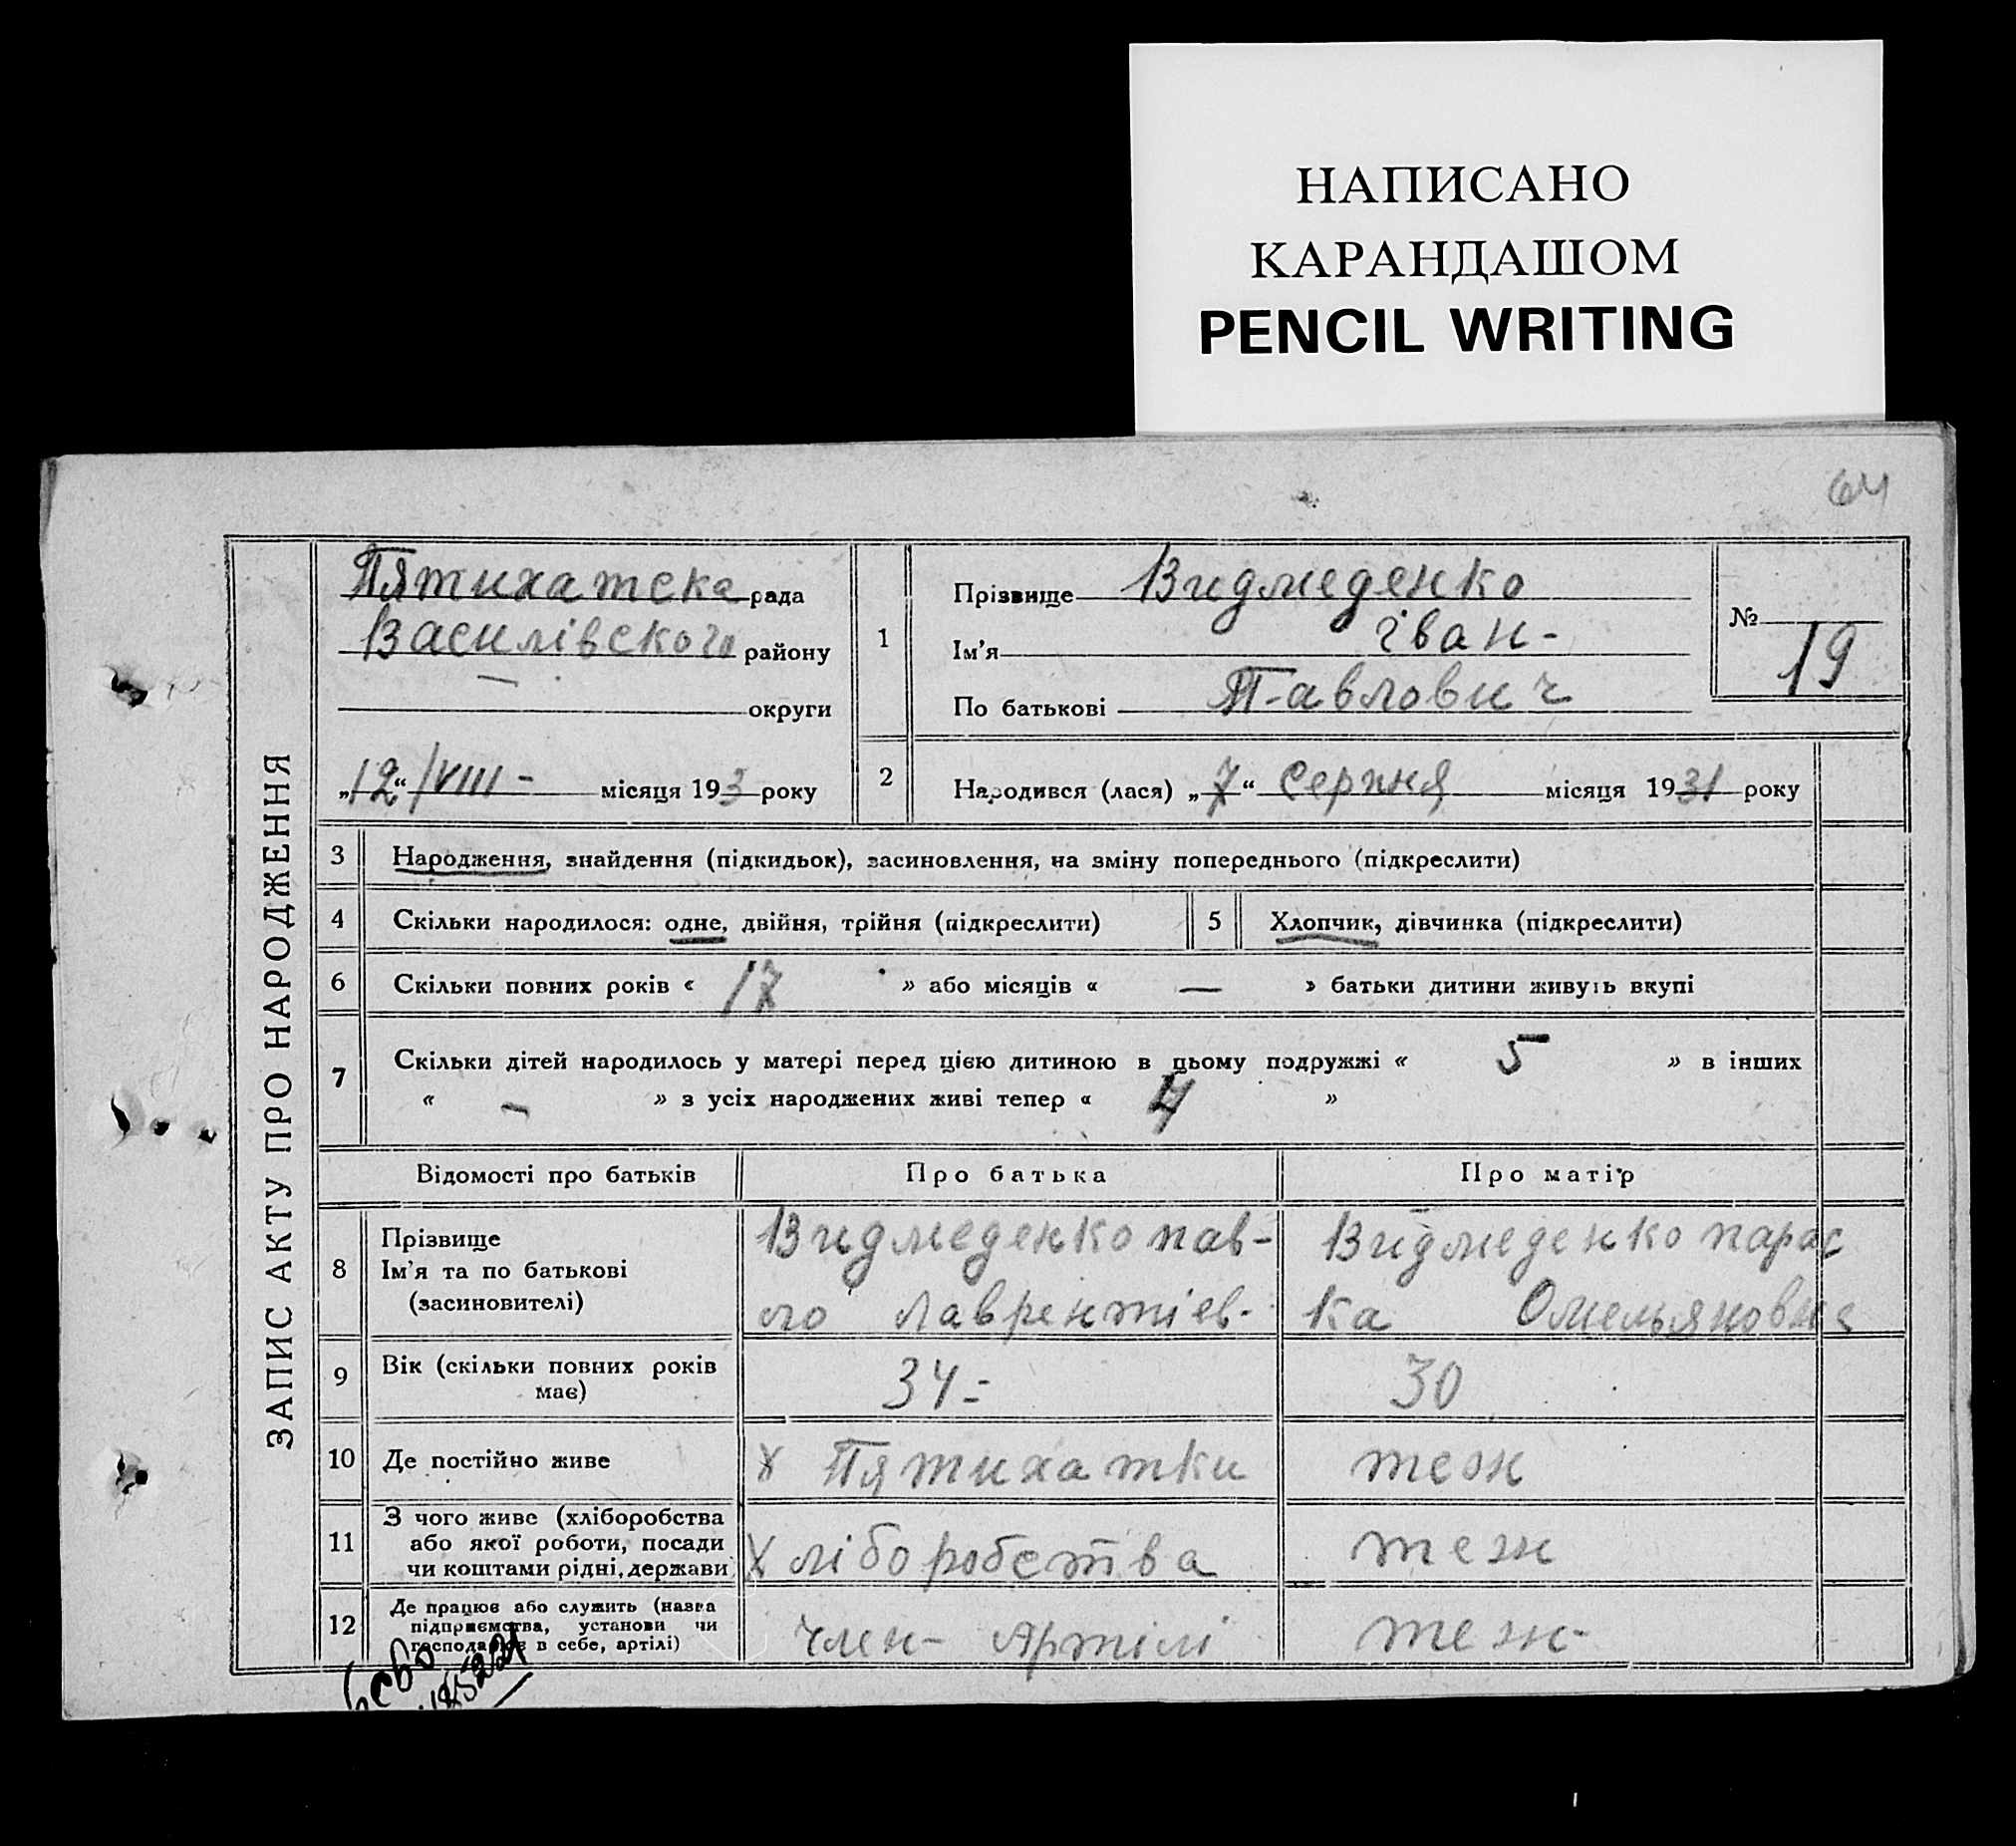 НАПИСАНО
КАРАНДАШОМ
PENCIL WRITING
64
ЗАПИС АКТУ ПРО НАРОДЖЕННЯ
Пятихатска рада
Василівского району
— округи
„12“ /VIII - місяця 193 року
1
Прізвище Видмеденко
Ім'я іван-
По батькові П-авлович
№ 19
2
Народився (лася) „7“ Серпня місяця 1931 року
3 Народження, знайдення (підкидьок), засиновлення, на зміну попереднього (підкреслити)
4 Скільки народилося: одне, двійня, трійня (підкреслити) 5 Хлопчик, дівчинка (підкреслити)
6 Скільки повних років « 17 » або місяців « — » батьки дитини живуть вкупі
7 Скільки дітей народилось у матері перед цією дитиною в цьому подружжі « 5 » в інших
« — » з усіх народжених живі тепер « 4 »
Відомості про батьків Про батька Про матір
8
Прізвище
Ім'я та по батькові
(засиновителі)
Видмеденко пав-
ло Лаврентіев-
Видмеденко парас
ка Омельяновна
9
Вік (скільки повних років
має)
34- 30
10 Де постійно живе х Пятихатки теж
11
З чого живе (хліборобства
або якої роботи, посади
чи коштами рідні, держави
Хліборобства теж
12
Де працює або служить (назва
підприємства, установи чи
господарює в себе, артілі)
член- Артілі теж-